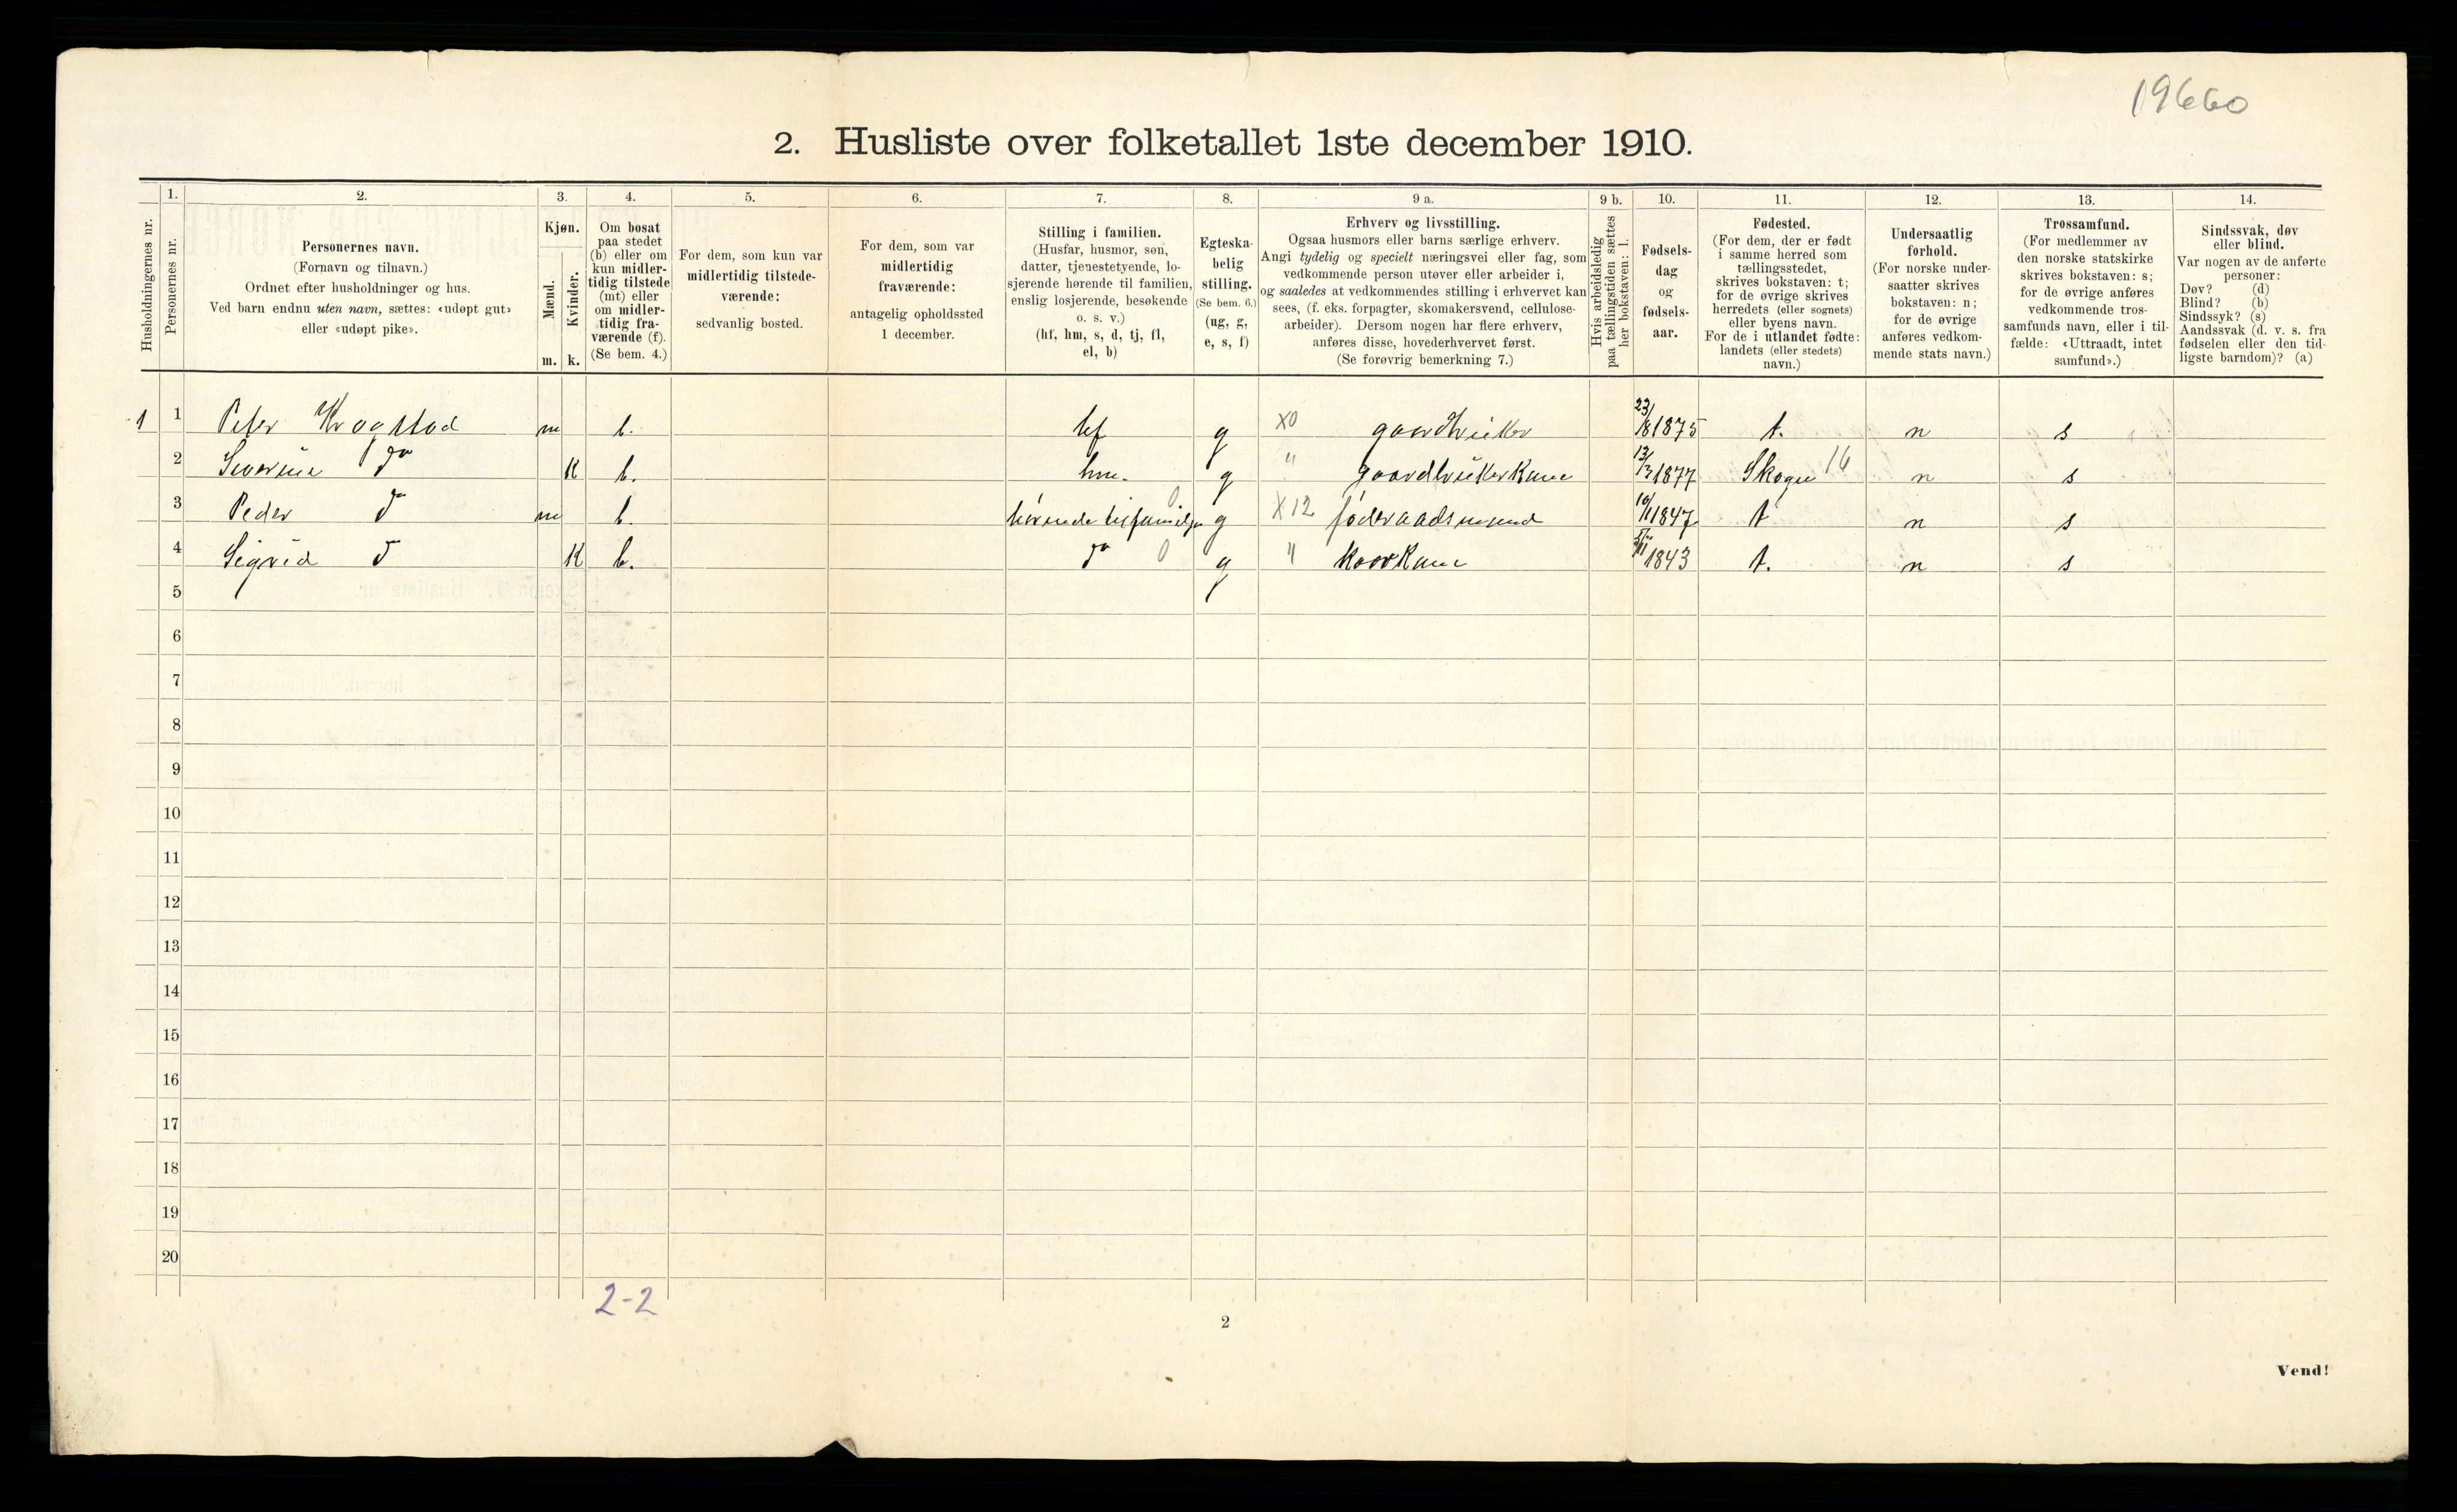 19660
2. Husliste over folketallet 1ste december 1910.
Husholdningernes nr.
1.
Personernes nr.
2.
Personernes navn.
(Fornavn og tilnavn.)
Ordnet efter husholdninger og hus.
Ved barn endnu uten navn, sættes: «udøpt gut»
eller «udøpt pike».
3.
Kjøn.
Mænd.
Kvinder.
m.
k.
4.
Om bosat
paa stedet
(b) eller om
kun midler-
tidig tilstede
(mt) eller
om midler-
tidig fra-
værende (f).
(Se bem. 4.)
5.
For dem, som kun var
midlertidig tilstede-
værende:
sedvanlig bosted.
6.
For dem, som var
midlertidig
fraværende:
antagelig opholdssted
1 december.
7.
Stilling i familien.
(Husfar, husmor, søn,
datter, tjenestetyende, lo-
sjerende hørende til familien,
enslig losjerende, besøkende
o. s. v.)
(hf, hm, s, d, tj, fl,
el, b)
8.
Egteska-
belig
stilling.
(Se bem. 6.)
(ug, g,
e, s, f)
9 a.
Erhverv og livsstilling.
Ogsaa husmors eller barns særlige erhverv.
Angi tydelig og specielt næringsvei eller fag, som
vedkommende person utøver eller arbeider i,
og saaledes at vedkommendes stilling i erhvervet kan
sees, (f. eks. forpagter, skomakersvend, cellulose-
arbeider). Dersom nogen har flere erhverv,
anføres disse, hovederhvervet først.
(Se forøvrig bemerkning 7.)
9 b.
Hvis arbeidsledig
paa tællingstiden sættes
her bokstaven: l.
10.
Fødsels-
dag
og
fødsels-
aar.
11.
Fødested.
(For dem, der er født
i samme herred som
tællingsstedet,
skrives bokstaven: t;
for de øvrige skrives
herredets (eller sognets)
eller byens navn.
For de i utlandet fødte:
landets (eller stedets)
navn.)
12.
Undersaatlig
forhold.
(For norske under-
saatter skrives
bokstaven: n;
for de øvrige
anføres vedkom-
mende stats navn.)
13.
Trossamfund.
(For medlemmer av
den norske statskirke
skrives bokstaven: s;
for de øvrige anføres
vedkommende tros-
samfunds navn, eller i til-
fælde: «Uttraadt, intet
samfund».)
14.
Sindssvak, døv
eller blind.
Var nogen av de anførte
personer:
Døv? (d)
Blind? (b)
Sindssyk? (s)
Aandssvak (d. v. s. fra
fødselen eller den tid-
ligste barndom)? (a)
1 1 Peter Krogstad m b. hf g X0 gaardbruker 23/8 1875 t. n s
2 Severine do K b. hm. g " gaardbrukerkone 13/3 1877 Skogn 16 n s
3 Peder do m b. hörende til familjen 0 g X12 föderaadsmand 10/11 1847 t n s
4 Sigrid do K b. do 0 g " kaarkone 1843 t. n s
5
6
7
8
9
10
11
12
13
14
15
16
17
18
19
20
2-2
2
Vend!